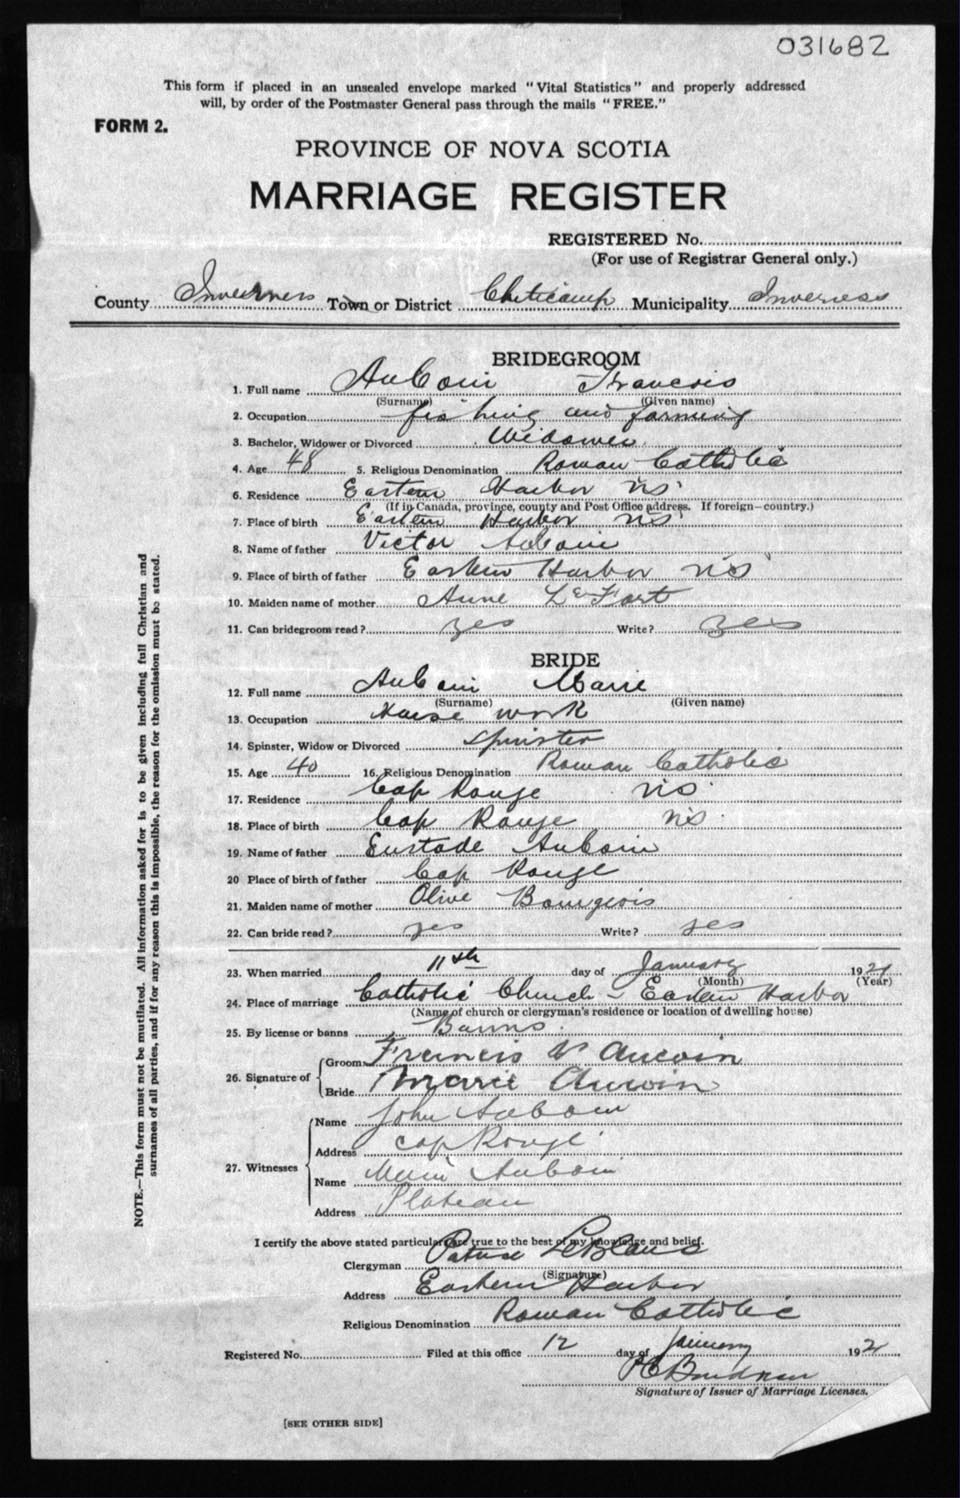 031682
This form if placed in an unsealed envelope marked "Vital Statistics" and properly addressed
will, by order of the Postmaster General pass through the mails "FREE."
FORM 2.
PROVINCE OF NOVA SCOTIA
MARRIAGE REGISTER
REGISTERED No.
(For use of Registrar General only.)
County Inverness Town or District Cheticamp Municipality Inverness
BRIDEGROOM
1. Full name AuCoin Francois
(Surname) (Given name)
2. Occupation fishing and farming
3. Bachelor, Widower or Divorced Widower
4. Age 48 5. Religious Denomination Roman Catholic
6. Residence Eastern Harbor NS
(If in Canada, province, county and Post Office address. If foreign—country.)
7. Place of birth Eastern Harbor NS
8. Name of father Victor AuCoin
9. Place of birth of father Eastern Harbor NS
10. Maiden name of mother Anne LeFort
11. Can bridegroom read? yes Write? yes
BRIDE
12. Full name AuCoin Marie
(Surname) (Given name)
13. Occupation House work
14. Spinster, Widow or Divorced Spinster
15. Age 40 16. Religious Denomination Roman Catholic
17. Residence Cap Rouge NS
18. Place of birth Cap Rouge NS
19. Name of father Eustade AuCoin
20 Place of birth of father Cap Rouge
21. Maiden name of mother Olive Bourgeois
22. Can bride read? yes Write? yes
23. When married 11th day of January 1921
(Month) (Year)
24. Place of marriage Catholic Church - Eastern Harbor
(Name of church or clergyman's residence or location of dwelling house)
25. By license or banns Banns
26. Signature of Groom Francis V Aucoin
Bride Marie Aucoin
27. Witnesses Name John AuCoin
Address Cap Rouge
Name Marie AuCoin
Address Plateau
I certify the above stated particulars are true to the best of my knowledge and belief.
Clergyman LeBlanc
(Signature)
Address Eastern Harbor
Religious Denomination Roman Catholic
Registered No. Filed at this office 12 day of January 192
Signature of Issuer of Marriage Licenses.
[SEE OTHER SIDE]
NOTE.—This form must not be mutilated. All information asked for is to be given including full Christian and
surnames of all parties, and if for any reason this is impossible, the reason for the omission must be stated.